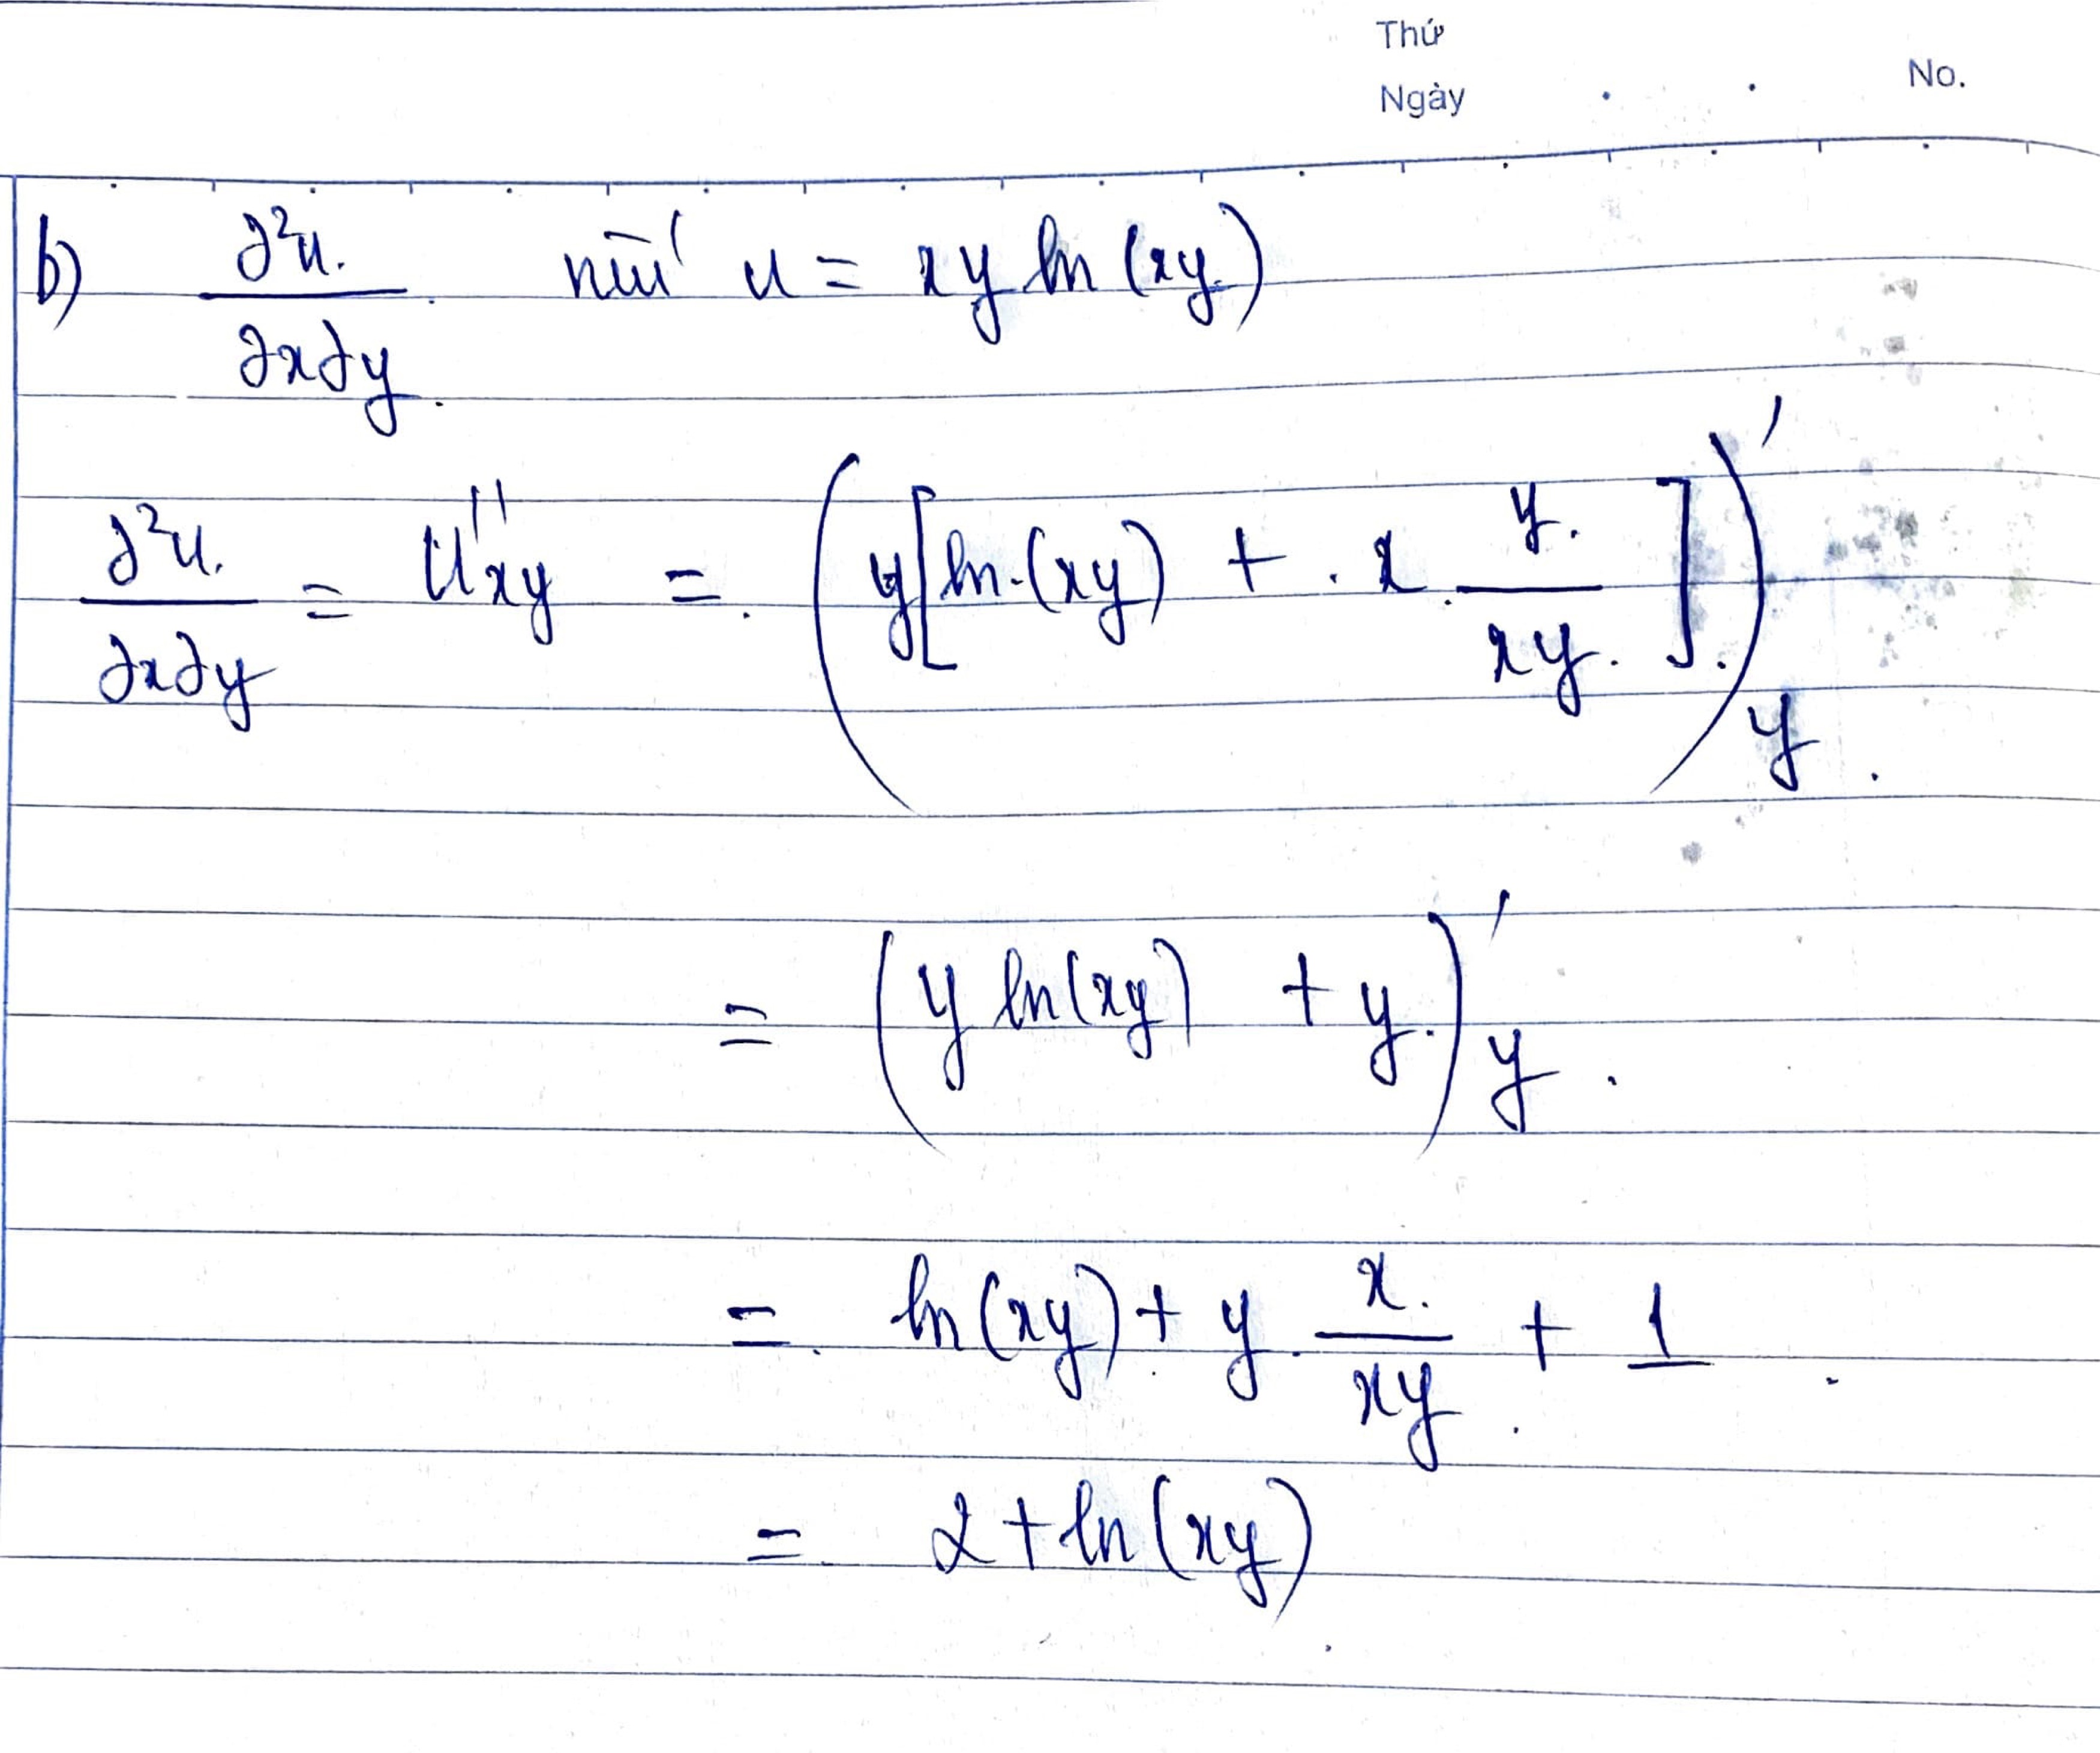 Thứ
Ngày . . No.
b) ∂²u/∂x∂y nếu u = xy ln (xy)
∂²u/∂x∂y = u''xy = (y[ln(xy) + x . y/xy])'y
= (y ln(xy) + y)'y
= ln(xy) + y . x/xy + 1
= 2 + ln(xy)